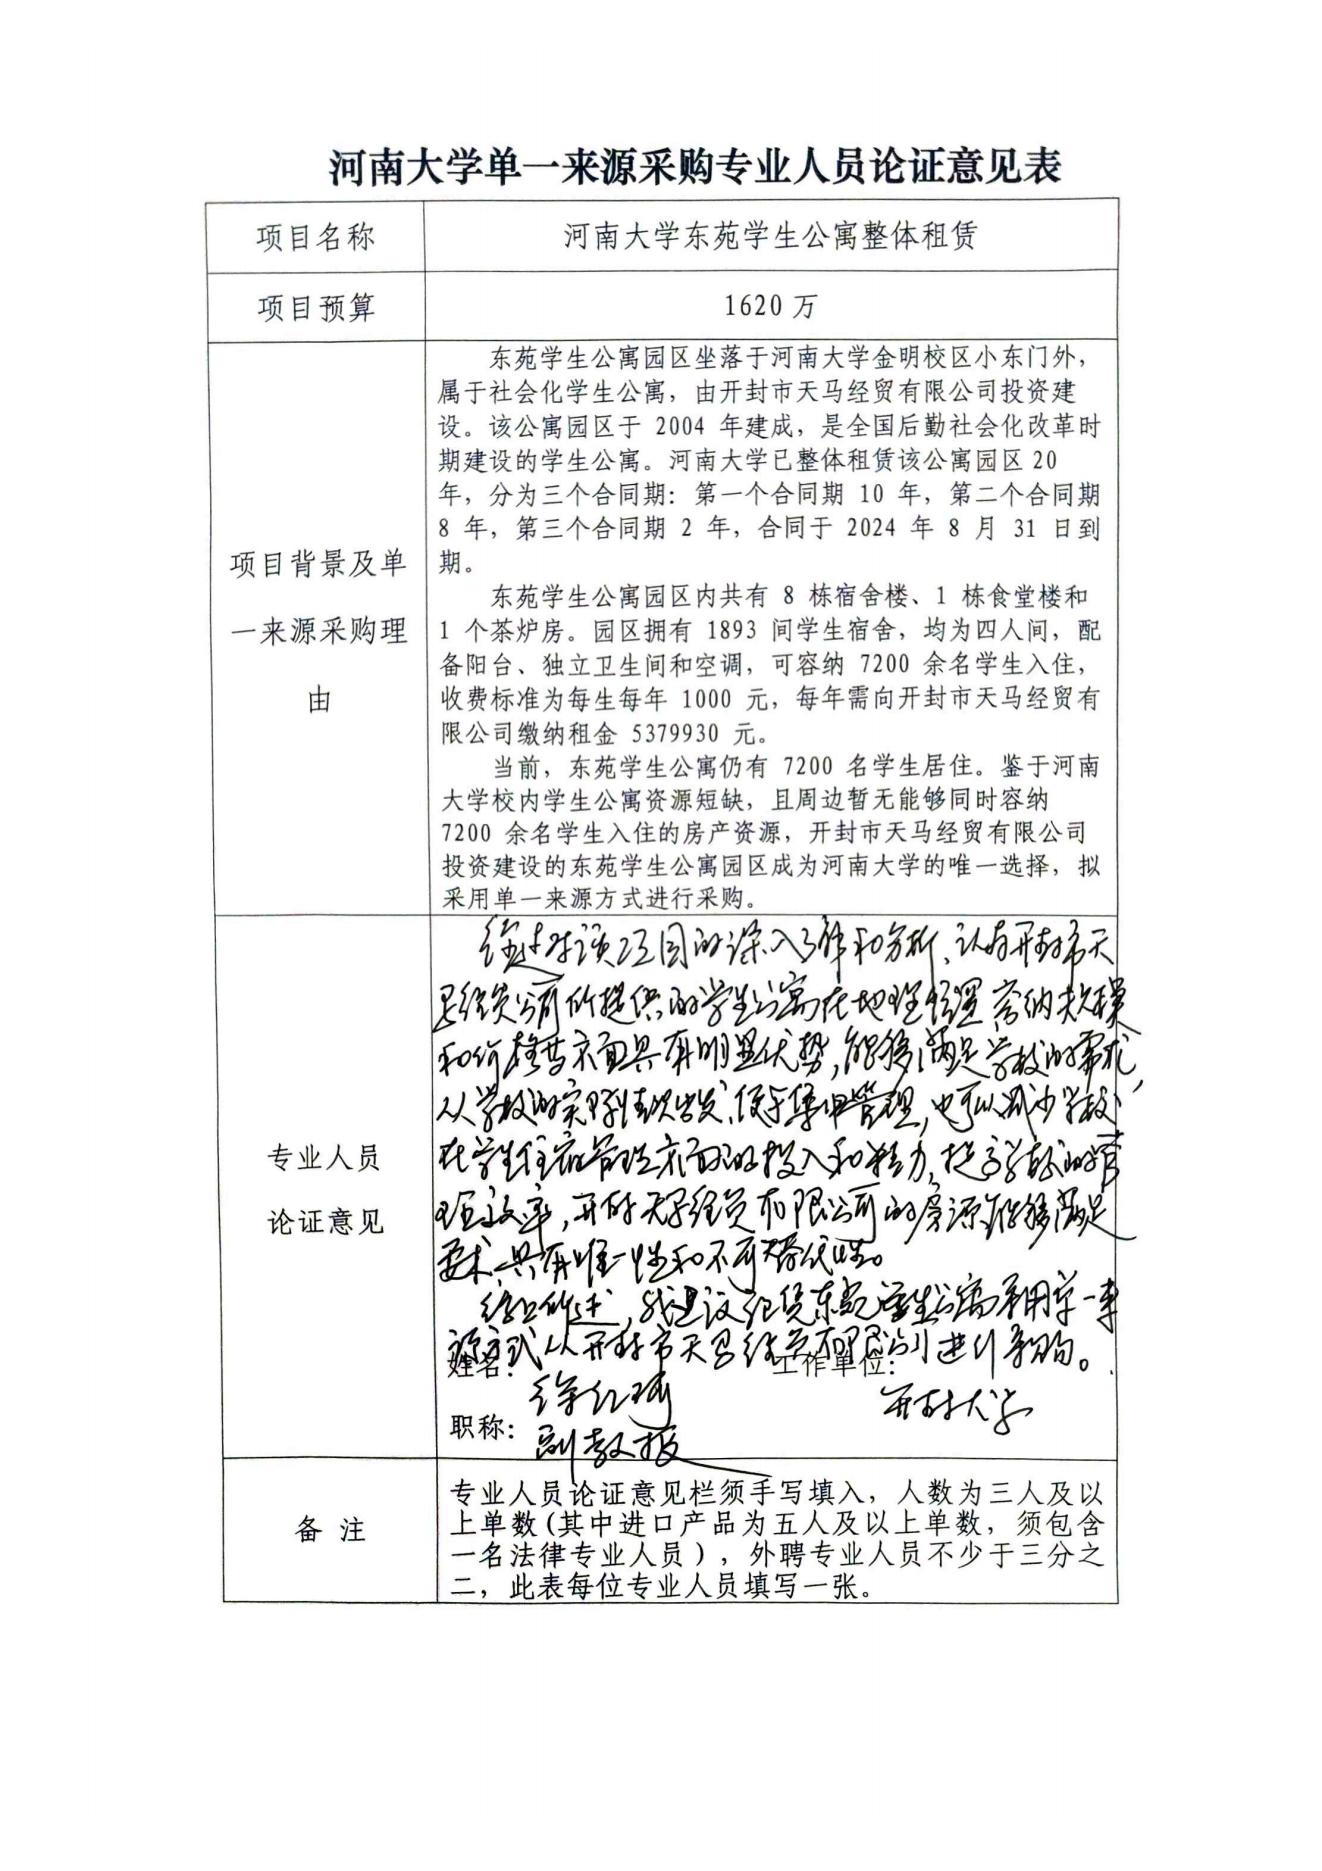 河南大学单一来源采购专业人员论证意见表
项目名称
河南大学东苑学生公寓整体租赁
项目预算
1620 万
项目背景及单
一来源采购理
由
东苑学生公寓园区坐落于河南大学金明校区小东门外，
属于社会化学生公寓，由开封市天马经贸有限公司投资建
设。该公寓园区于 2004 年建成，是全国后勤社会化改革时
期建设的学生公寓。河南大学已整体租赁该公寓园区 20
年，分为三个合同期：第一个合同期 10 年，第二个合同期
8 年，第三个合同期 2 年，合同于 2024 年 8 月 31 日到
期。
东苑学生公寓园区内共有 8 栋宿舍楼、1 栋食堂楼和
1 个茶炉房。园区拥有 1893 间学生宿舍，均为四人间，配
备阳台、独立卫生间和空调，可容纳 7200 余名学生入住，
收费标准为每生每年 1000 元，每年需向开封市天马经贸有
限公司缴纳租金 5379930 元。
当前，东苑学生公寓仍有 7200 名学生居住。鉴于河南
大学校内学生公寓资源短缺，且周边暂无能够同时容纳
7200 余名学生入住的房产资源，开封市天马经贸有限公司
投资建设的东苑学生公寓园区成为河南大学的唯一选择，拟
采用单一来源方式进行采购。
专业人员
论证意见
经过对该项目的深入了解和分析，认为开封市天
马经贸公司所提供的学生公寓在地理位置、容纳规模
和价格等方面具有明显优势，能够满足学校的需求，
从学校的实际情况出发，便于集中管理，也可以减少学校
在学生住宿管理方面的投入和精力，提高学校的管
理效率，开封天马经贸有限公司的房源能够满足
要求，具有唯一性和不可替代性。
综上所述，我建议租赁东苑学生公寓采用单一来
源方式从开封市天马经贸有限公司进行采购。
姓名：
工作单位：
开封大学
职称：
副教授
备 注
专业人员论证意见栏须手写填入，人数为三人及以
上单数(其中进口产品为五人及以上单数，须包含
一名法律专业人员)，外聘专业人员不少于三分之
二，此表每位专业人员填写一张。